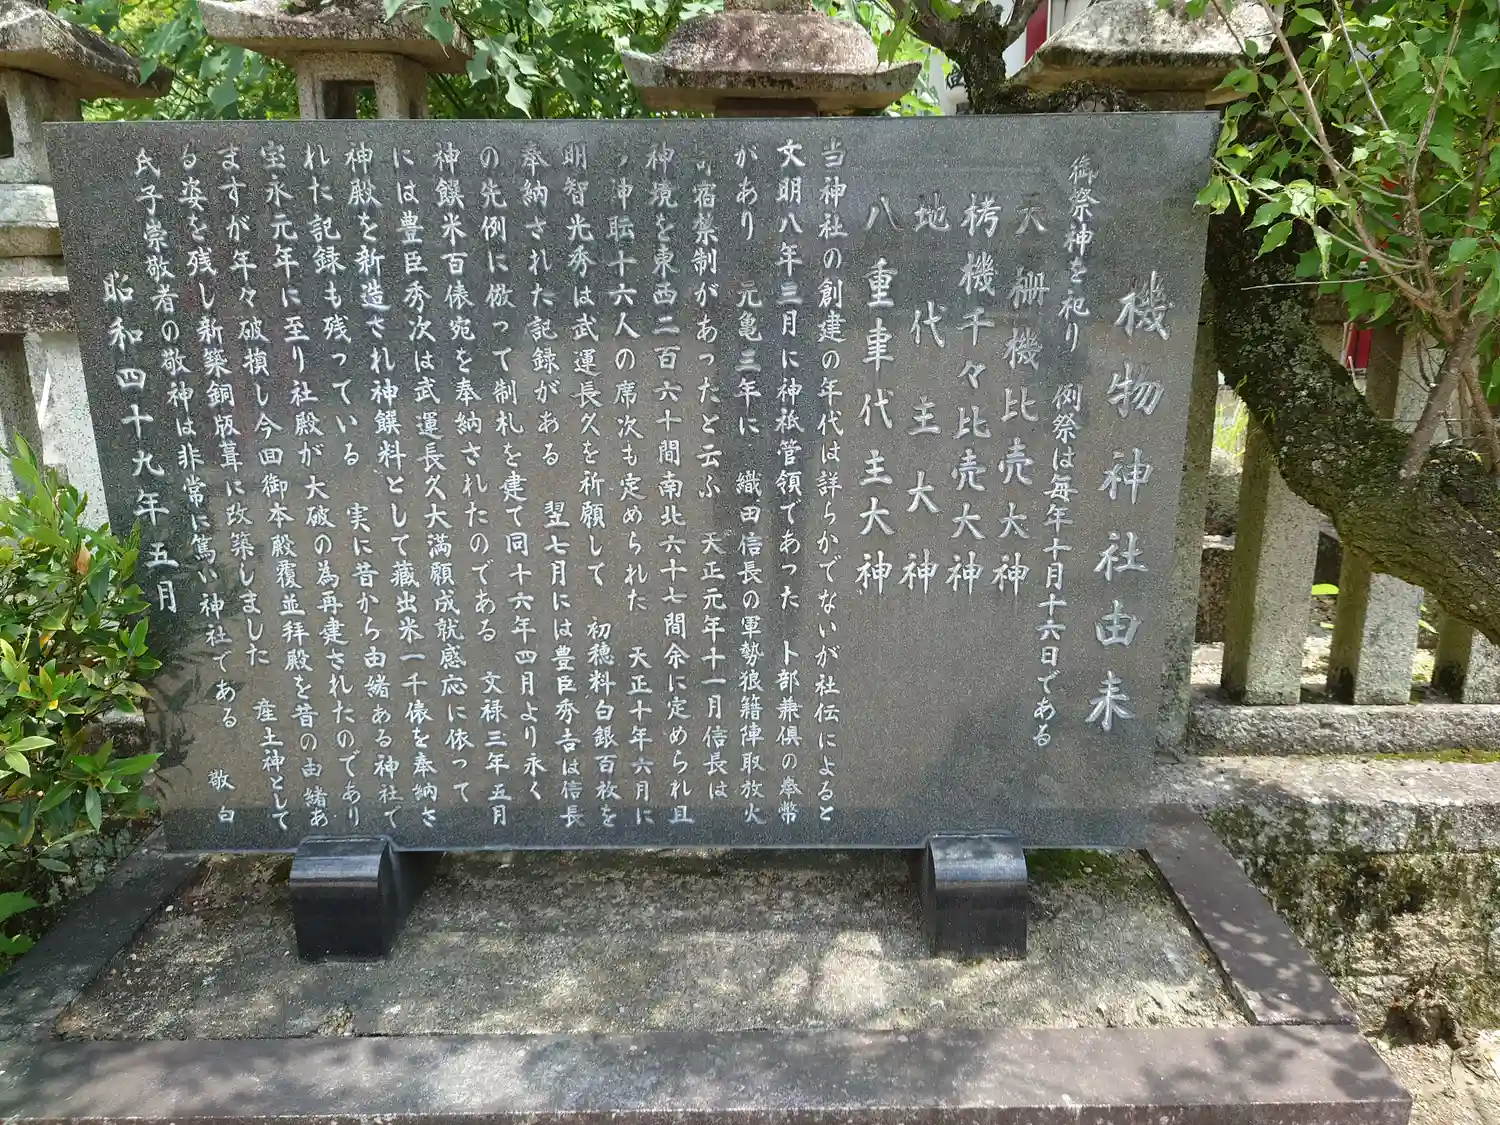 機物神社由来
御祭神を祀り　例祭は毎年十月十六日である
天棚機比売大神
栲機千々比売大神
地代主大神
八重事代主大神
当神社の創建の年代は詳らかでないが社伝によると
文明八年三月に神祇管領であった　卜部兼倶の奉幣
があり　元亀三年に　織田信長の軍勢狼籍陣取放火
宿禁制があったと云ふ　天正元年十一月信長は
神境を東西二百六十間南北六十七間余に定められ且
つ神坛十六人の席次も定められた　天正十年六月に
明智光秀は武運長久を祈願して　初穂料白銀百枚を
奉納された記録がある　翌七月には豊臣秀吉は信長
の先例に倣って制札を建て同十六年四月より永く
神饌米百俵宛を奉納されたのである　文禄三年五月
には豊臣秀次は武運長久大満願成就感応に依って
神殿を新造され神饌料として蔵出米一千俵を奉納さ
れた記録も残っている　実に昔から由緒ある神社で
宝永元年に至り社殿が大破の為再建されたのであり
ますが年々破損し今回御本殿覆並拝殿を昔の由緒あ
る姿を残し新築銅版葺に改築しました　産土神として
氏子崇敬者の敬神は非常に篤い神社である　敬白
昭和四十九年五月